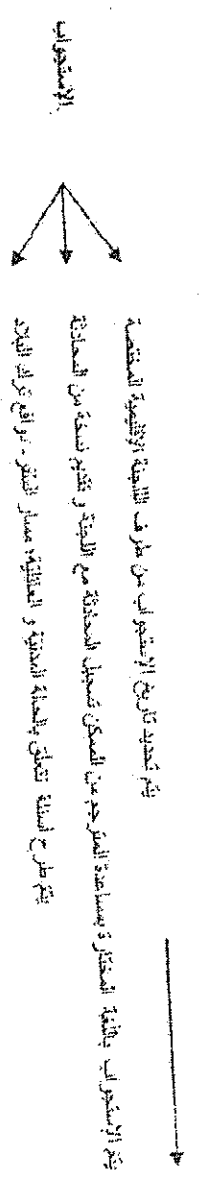 الإستجواب
يتم تحديد تاريخ الإستجواب من طرف اللجنة الإقليمية المختصة
يتم الإستجواب باللغة المختارة بمساعدة المترجم من الممكن تسجيل المحادثة مع اللجنة و تقديم نسخة من المحادثة
يتم طرح أسئلة تتعلق بالحالة المدنية و العائلية، مسار السفر - دوافع ترك البلاد